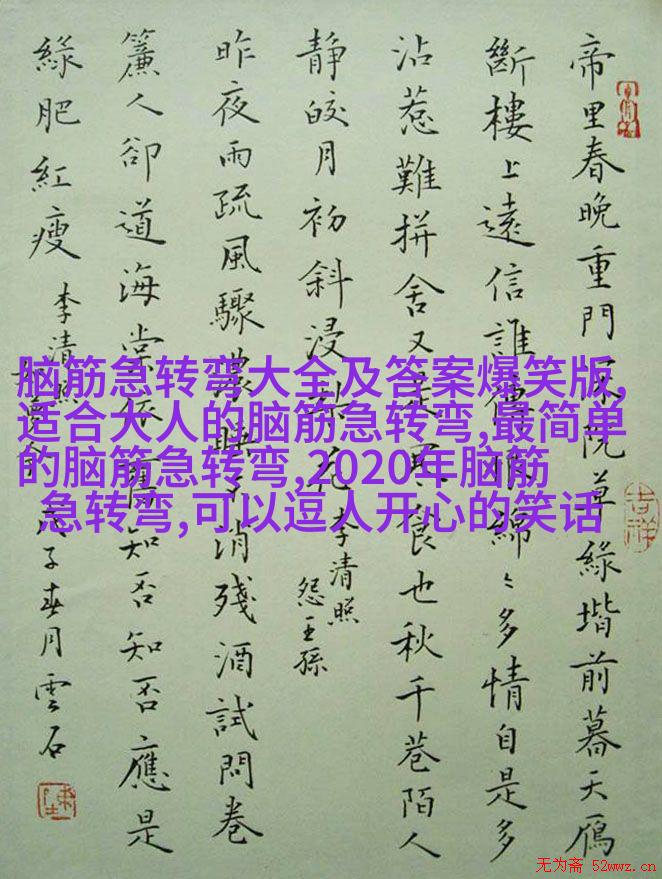 帝里春晚重門深院草綠堦前暮天鴈
斷樓上遠信誰傳恨綿〻多情自是多
沾惹難拼舍又是寒食也秋千巷陌人
靜皎月初斜浸梨花 李清照
怨王孫
昨夜雨疏風驟濃睡不消殘酒試問卷
簾人卻道海棠依舊知否知否應是
綠肥紅瘦 李清照
如夢令 戊子春月雲石
脑筋急转弯大全及答案爆笑版,
适合大人的脑筋急转弯,最简单
的脑筋急转弯,2020年脑筋
急转弯,可以逗人开心的笑话
吉祥
无为斋 52wwz.cn